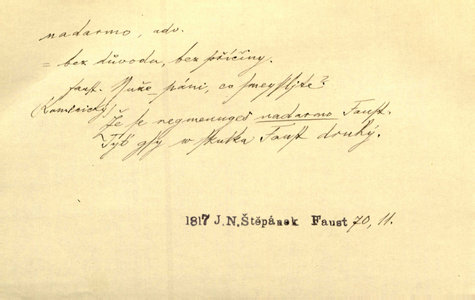 nadarmo, adv.
= bez důvodu, bez příčiny.
Faust. Nuže páni, co smeyssljte?
(Lomnický) Že se negmenugeš nadarmo Faust.
Tyś gsy w skutku Faust druhý.
1817 J.N.Štěpánek Faust 70, 11.